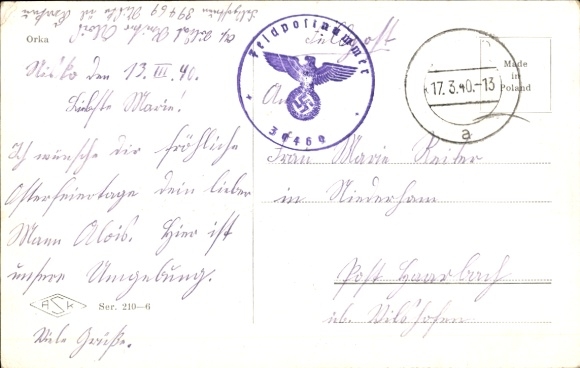 Feldpostnummer 39469
Orka
Feldpost
Nisko den 13. III. 40.
Liebste Marie!
Ich wünsche dir fröhliche
Osterfeiertage dein lieber
Mann Alois. Hier ist
unsere Umgebung.
Viele Grüße.
ASK
Ser. 210—6
Feldpostnummer
39469
An
17.3.40.-13
a
Made
in
Poland
Frau Marie Reiter
in Niederham
Post Haarbach
üb. Vilshofen